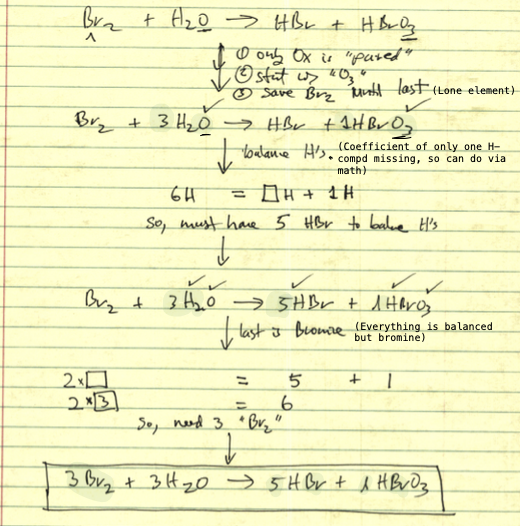 Br₂ + H₂O → HBr + HBrO₃
① only Ox is "paired"
② start w/ "O₃"
③ save Br₂ until last (Lone element)
Br₂ + 3H₂O → HBr + 1HBrO₃
balance H's. (Coefficient of only one H-
compd missing, so can do via
math)
6H = □H + 1H
So, must have 5 HBr to balance H's
Br₂ + 3H₂O → 5HBr + 1HBrO₃
last is Bromine (Everything is balanced
but bromine)
2×□ = 5 + 1
2×3 = 6
So, need 3 "Br₂"
3Br₂ + 3H₂O → 5HBr + 1HBrO₃